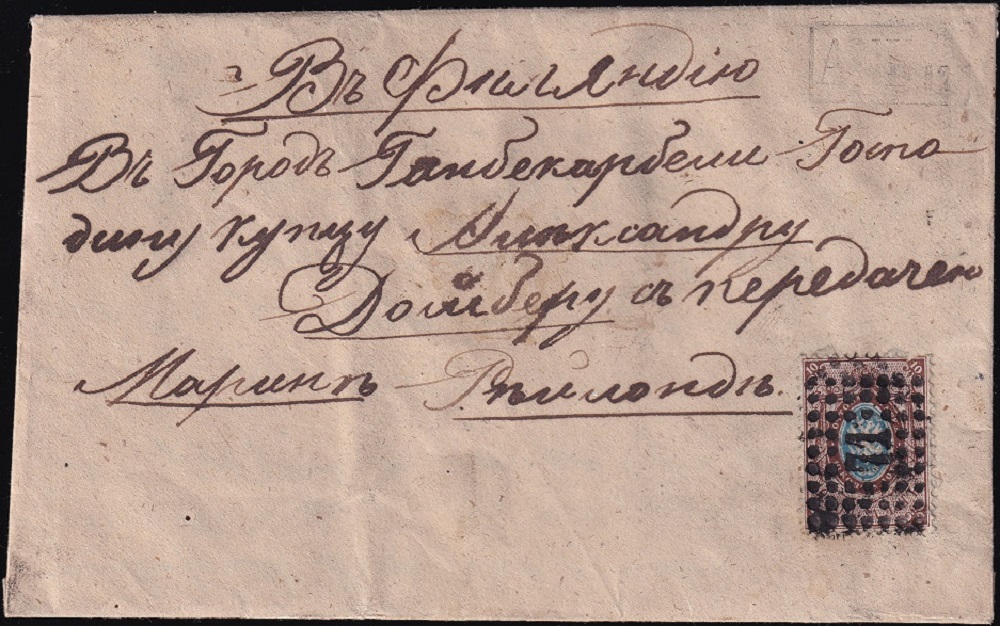 Въ Филяндію
Въ Городъ Ганбекарбели Госпо
дину купцу Аликсандру
Домберу съ передачею
Марин
10 10